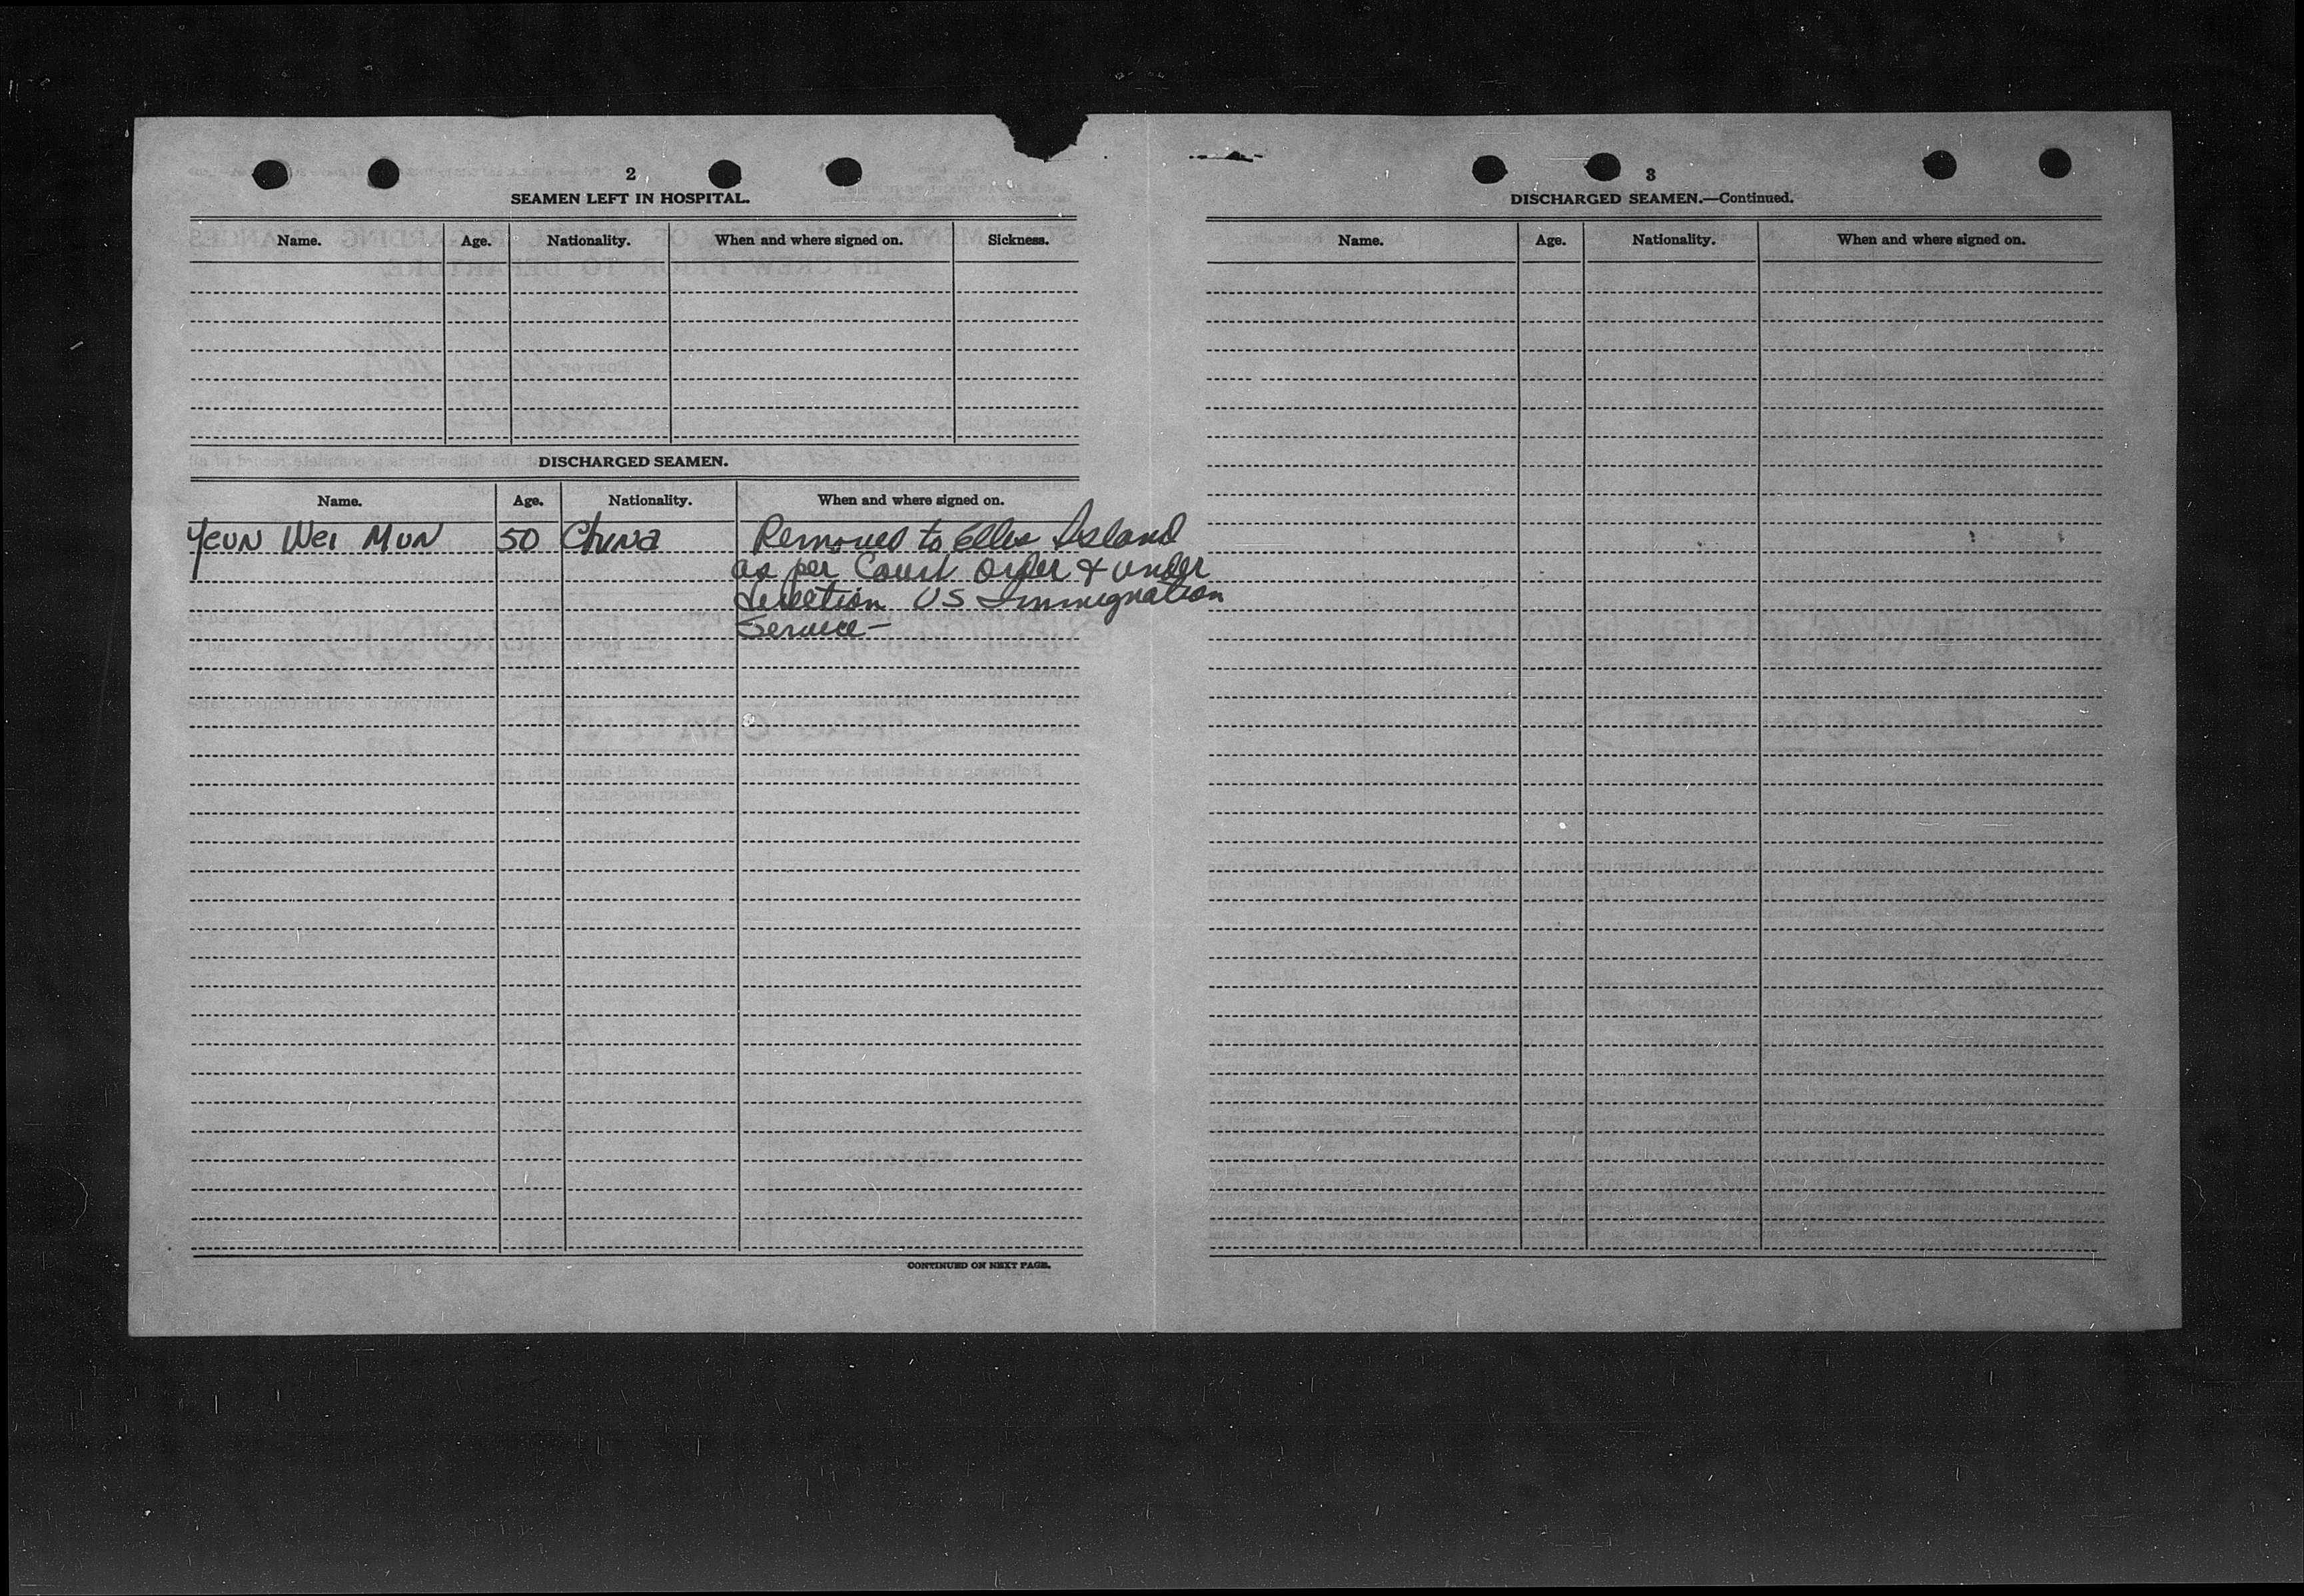 2
SEAMEN LEFT IN HOSPITAL.
Name. Age. Nationality. When and where signed on. Sickness.
DISCHARGED SEAMEN.
Name. Age. Nationality. When and where signed on.
Yeun Wei Mun 50 China Removed to Ellis Island
as per Court Order & under
direction US Immigration
Service—
CONTINUED ON NEXT PAGE.
3
DISCHARGED SEAMEN.—Continued.
Name. Age. Nationality. When and where signed on.